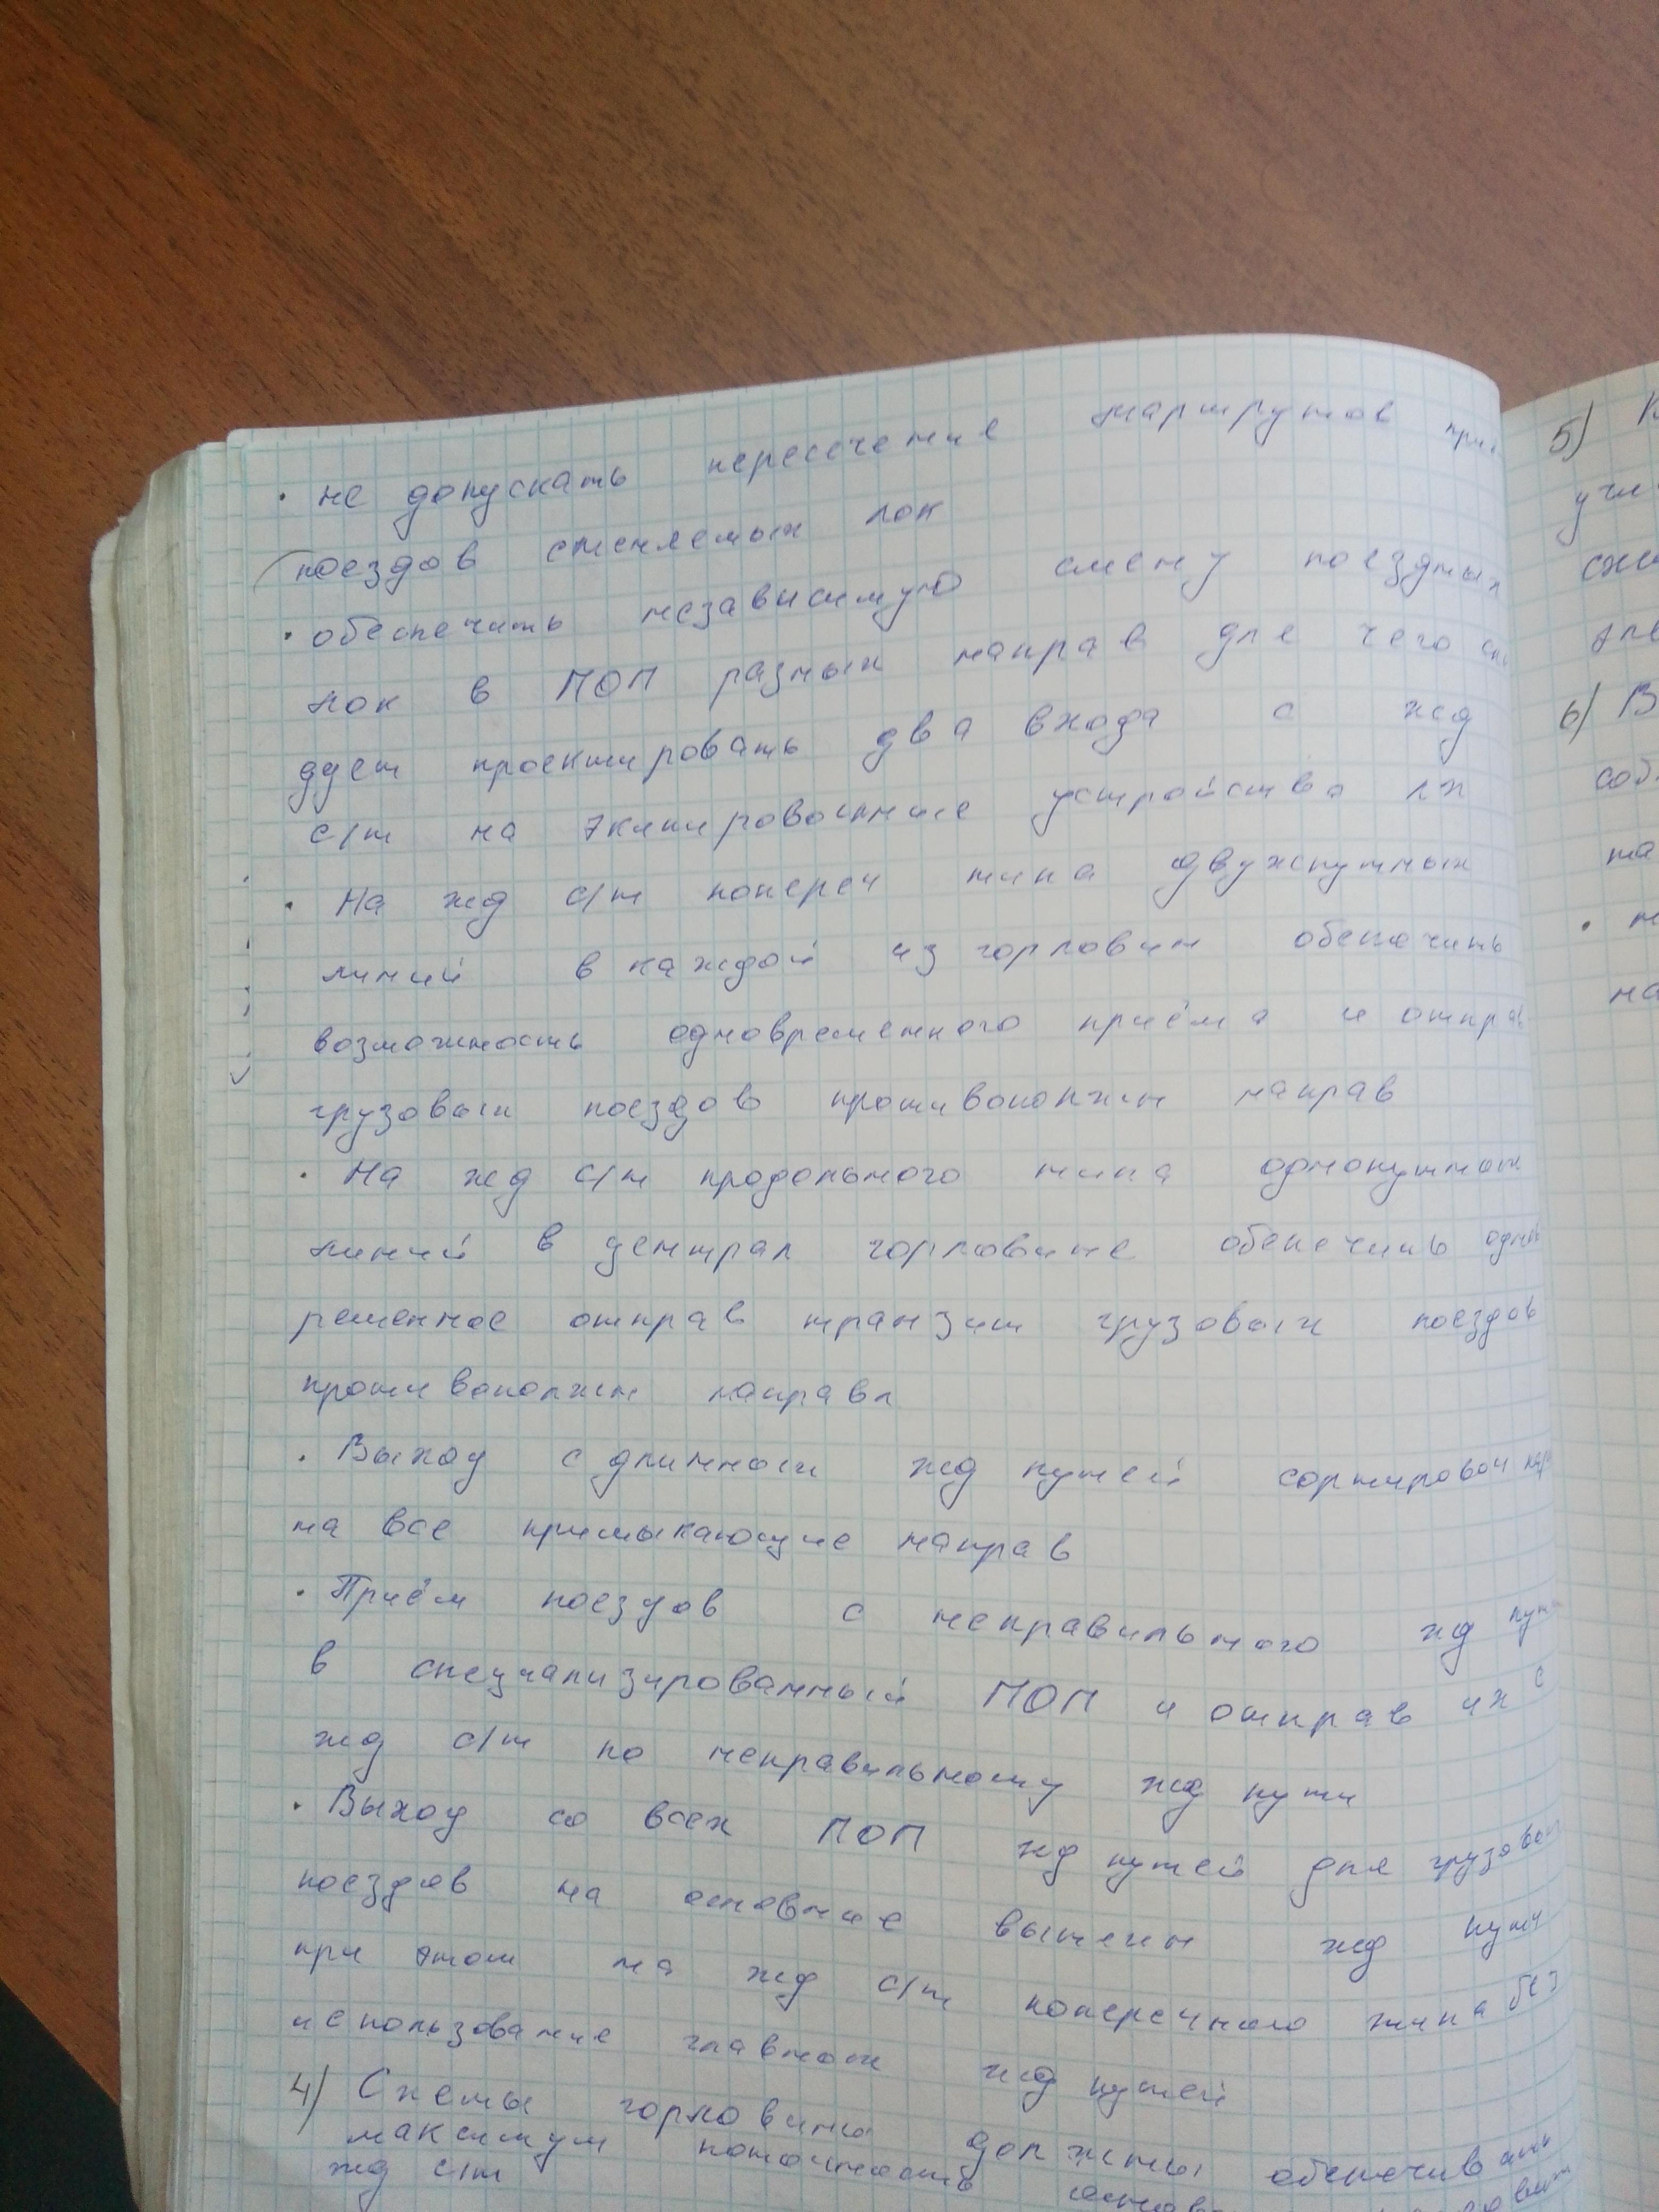 · не допускать пересечение маршрутов при
поездов сменяемых лок
· обеспечить независимую смену поездных
лок в ПОП разных направ для чего сле
дует проектировать два входа с жд
с/т на экипировочные устройства лх
· На жд с/т попереч типа двухпутных
линий в каждой из горловин обеспечить
возможность одновременного приёма и отправ
грузовых поездов противополжн направ
· На жд с/т продольного типа однопутных
линий в централ горловине обеспечить одно
ременное отправ транзит грузовых поездов
противополжн направл
· Выход с длинных жд путей сортировоч пар
на все примыкающие направ
· Приём поездов с неправильного жд пути
в специализированный ПОП и отправ их с
жд с/т по неправильному жд пути
· Выход со всех ПОП жд путей для грузовых
поездов на основные вытягн жд пути
при этом на жд с/т поперечного типа без
использование главных жд путей
4) Схемы горловины должны обеспечивать
максимум поточность
жд с/т
5)
учи
схе
6) В
соб
та
на